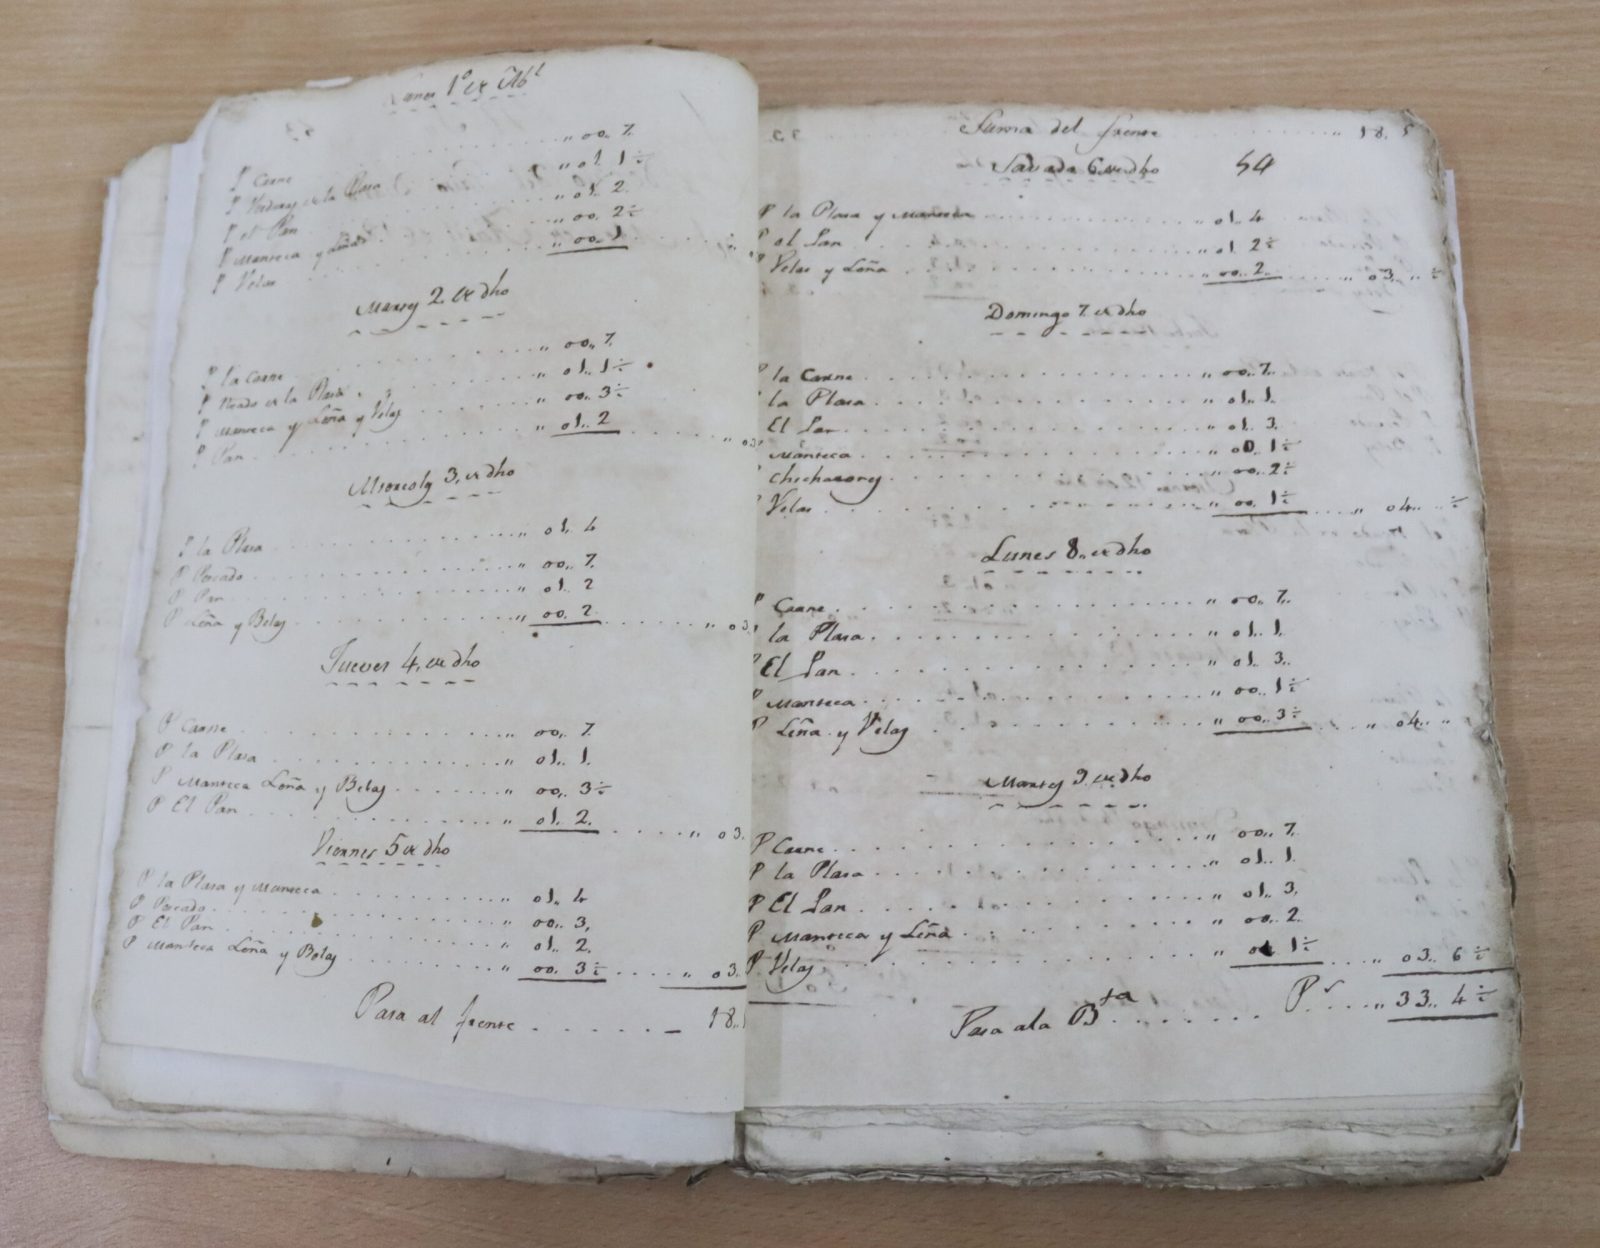 Lunes 1º de Abl
P Carne . . . . . . . . „ 00.. 7.
P Verduras de la Plasa „ 01.. 1 ½
P el Pan . . . . . . . . „ 01.. 2.
P Manteca y Leña . . . . „ 00.. 2 ½
P Velas . . . . . . . . „ 00.. 1
Martes 2. de dho
P la Carne . . . . . . . . „ 00.. 7.
P Recado de la Plasa . . . . „ 01.. 1 ½
P Manteca y Leña y Velas . . . . „ 00.. 3 ½
P Pan . . . . . . . . „ 01.. 2 . . . . „ 03.
Miercoles 3. de dho
P la Plasa . . . . . . . . „ 01.. 4
P Pescado . . . . . . . . „ 00.. 7.
P Pan . . . . . . . . „ 01.. 2
P Leña y Belas . . . . . . . . „ 00.. 2. . . . . „ 03.
Jueves 4. de dho
P Carne . . . . . . . . „ 00.. 7
P la Plasa . . . . . . . . „ 01.. 1.
P Manteca Leña y Belas . . . . „ 00.. 3 ½
P El Pan . . . . . . . . „ 01.. 2. . . . . „ 03.
Viernes 5 de dho
P la Plasa y Manteca . . . . . . . . „ 01.. 4
P Pescado . . . . . . . . „ 00.. 3,
P El Pan . . . . . . . . „ 01.. 2.
P Manteca Leña y Belas . . . . „ 00.. 3 ½ . . . . „ 03.
Pasa al frente . . . . . . 18..
Suma del frente . . . . . . „ 18. 5
54
Savado 6 de dho
P la Plasa y Manteca . . . . . . . . „ 01.. 4
P el Pan . . . . . . . . „ 01 2 ½
P Velas y Leña . . . . . . . . „ 00.. 2. . . . . „ 03.. „ ½
Domingo 7. de dho
P la Carne . . . . . . . . „ 00.. 7.
P la Plasa . . . . . . . . „ 01.. 1.
P El Pan . . . . . . . . „ 01.. 3.
P Manteca . . . . . . . . „ 00.. 1 ½
P Chicharos . . . . . . . . „ 00.. 2 ½
P Velas . . . . . . . . „ 00.. 1 ½ . . . . „ 04.. „ ½
Lunes 8.. de dho
P Carne . . . . . . . . „ 00.. 7.
P la Plasa . . . . . . . . „ 01.. 1.
P El Pan . . . . . . . . „ 01.. 3..
P Manteca . . . . . . . . „ 00.. 1 ½
P Leña y Velas . . . . . . . . „ 00.. 3 ½ . . . . „ 04.. „
Martes 9. de dho
P Carne . . . . . . . . „ 00.. 7.
P la Plasa . . . . . . . . „ 01.. 1.
P El Pan . . . . . . . . „ 01.. 3.
P Manteca y Leña . . . . . . . . „ 00.. 2.
P Velas . . . . . . . . „ 1 ½ . . . . „ 03.. 6 ½
Pasa ala Bta . . . . . . . . Ps . . . . „ 33.. 4 ½